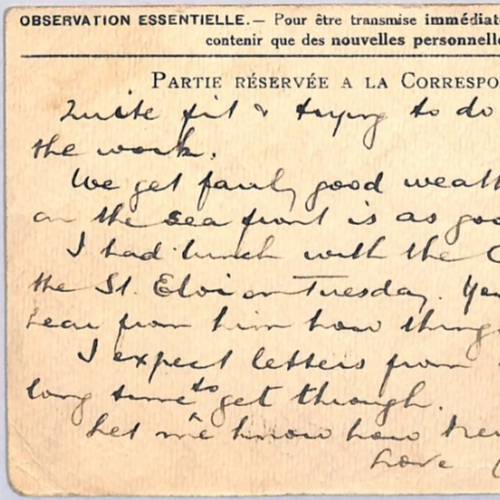 OBSERVATION ESSENTIELLE. — Pour être transmise immédiat
contenir que des nouvelles personnelle
PARTIE RÉSERVÉE A LA CORRESPO
Quite fit & trying to do
the work.
We get fairly good weath
on the sea front is as goo
I had lunch with the C
the St. Eloi on Tuesday. You
hear from him how thing
I expect letters from
long time to get through.
Let me know how
Love